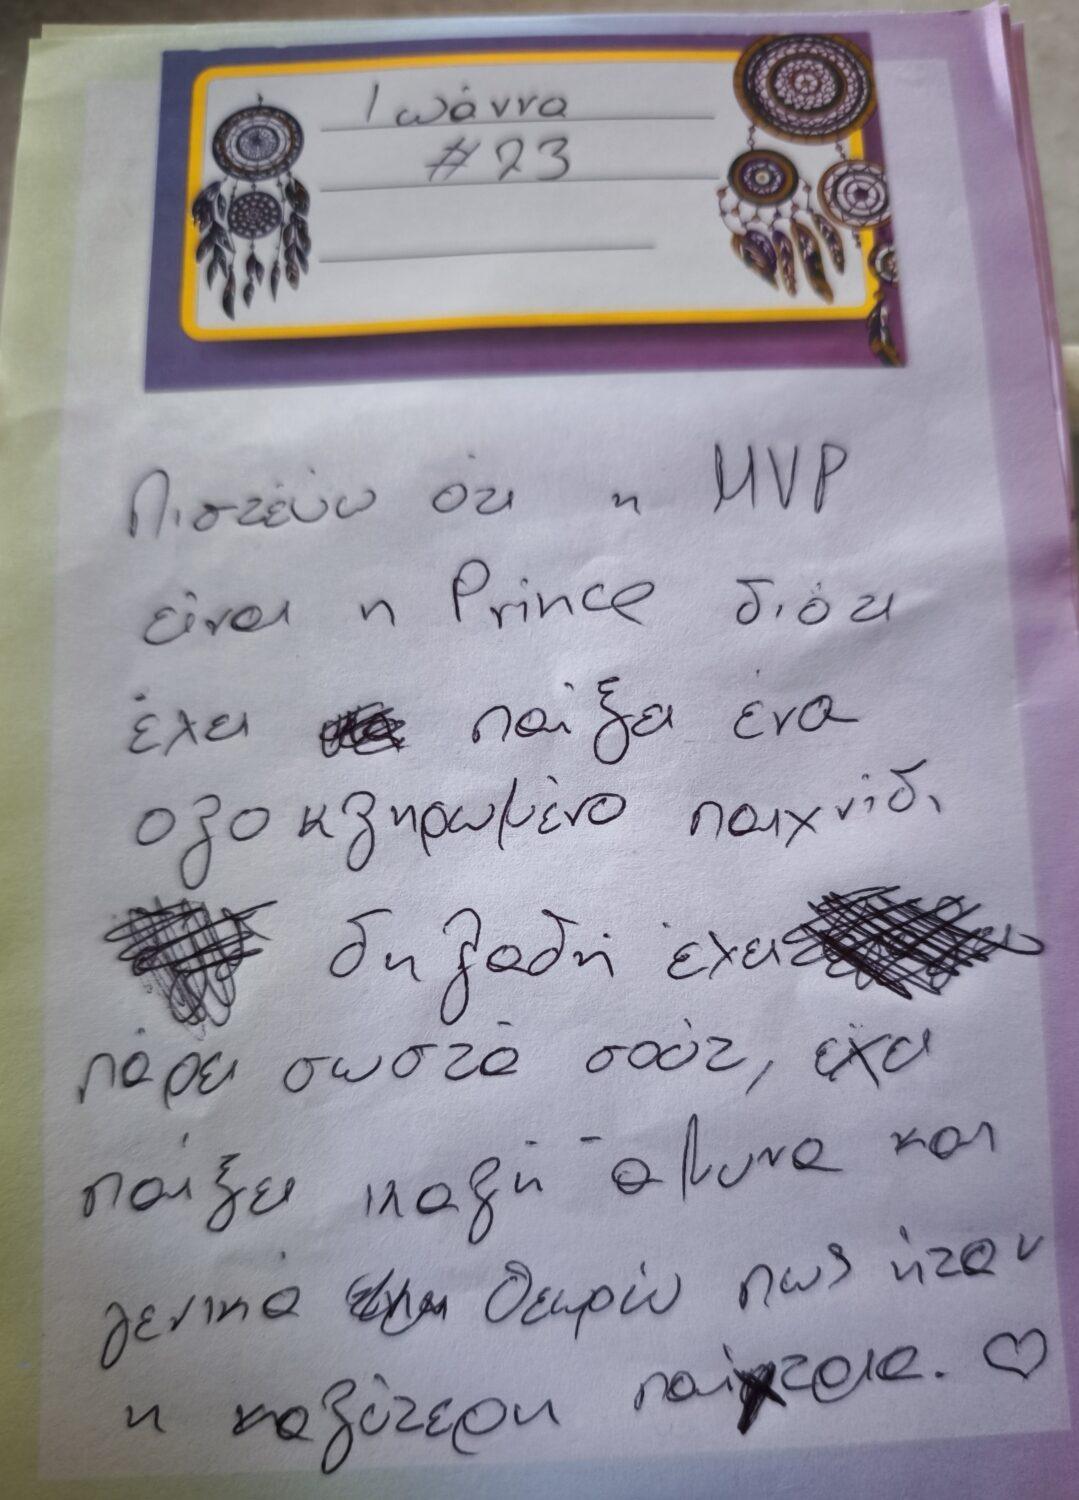 Ιωάννα
#23
Πιστεύω ότι η MVP
είναι η Prince διότι
έχει παίξει ένα
ολοκληρωμένο παιχνίδι
δηλαδή έχει
πάρει σωστά σούτ, έχει
παίξει καλή άμυνα και
γενικά θεωρώ πως ήταν
η καλύτερη παίχτρια. ♡